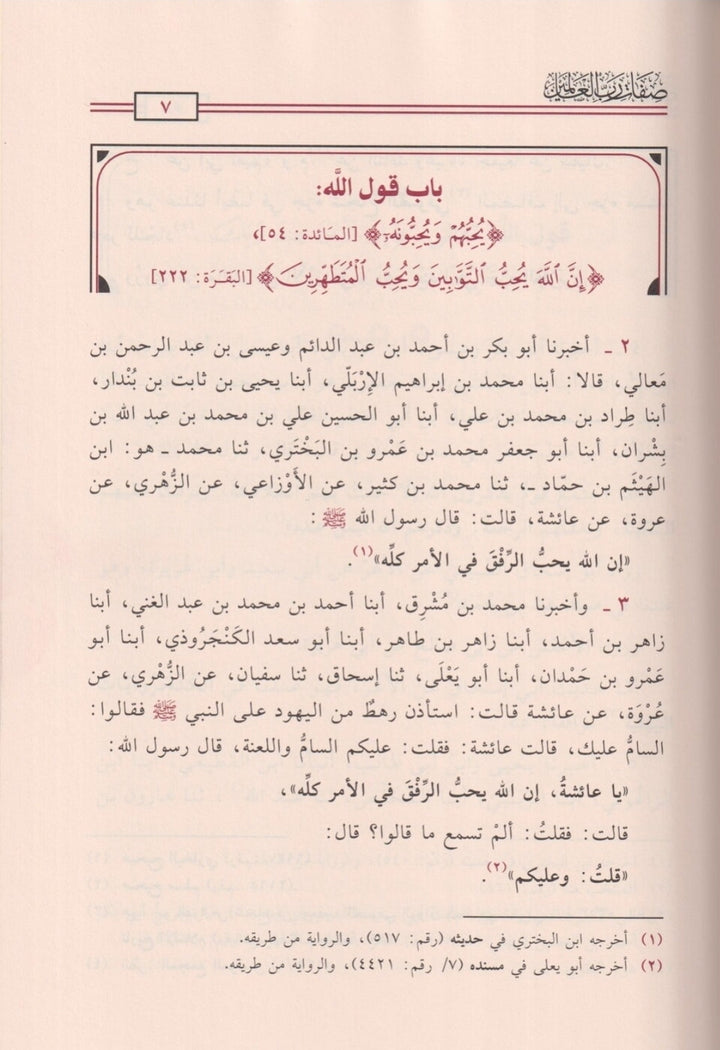 صفات رب العالمين
٧
باب قول الله:
﴿يُحِبُّهُمْ وَيُحِبُّونَهُۥ﴾ [المائدة: ٥٤]،
﴿إِنَّ ٱللَّهَ يُحِبُّ ٱلتَّوَّٰبِينَ وَيُحِبُّ ٱلْمُتَطَهِّرِينَ﴾ [البَقَرَة: ٢٢٢]
٢ ـ أخبرنا أبو بكر بن أحمد بن عبد الدائم وعيسى بن عبد الرحمن بن
مَعالي، قالا: أبنا محمد بن إبراهيم الإرْبَلّي، أبنا يحيى بن ثابت بن بُنْدار،
أبنا طِراد بن محمد بن علي، أبنا أبو الحسين علي بن محمد بن عبد الله بن
بِشْران، أبنا أبو جعفر محمد بن عَمْرو بن البَخْتَري، ثنا محمد ـ هو: ابن
الهَيْثَم بن حمّاد ـ، ثنا محمد بن كثير، عن الأَوْزاعي، عن الزُّهْري، عن
عروة، عن عائشة، قالت: قال رسول الله ﷺ:
«إن الله يحبُّ الرِّفْقَ في الأمر كلِّه»(١).
٣ ـ وأخبرنا محمد بن مُشْرِق، أبنا أحمد بن محمد بن عبد الغني، أبنا
زاهر بن أحمد، أبنا زاهر بن طاهر، أبنا أبو سعد الكَنْجَروذي، أبنا أبو
عَمْرو بن حَمْدان، أبنا أبو يَعْلَى، ثنا إسحاق، ثنا سفيان، عن الزُّهْري، عن
عُرْوَة، عن عائشة قالت: استأذن رهطٌ من اليهود على النبي ﷺ فقالوا:
السامُ عليك، قالت عائشة: فقلت: عليكم السامُ واللعنة، قال رسول الله:
«يا عائشةُ، إن الله يحبُّ الرِّفْقَ في الأمر كلِّه»،
قالت: فقلتُ: ألمْ تسمع ما قالوا؟ قال:
«قلتُ: وعليكم»(٢).
(١) أخرجه ابن البختري في حديثه (رقم: ٥١٧)، والرواية من طريقه.
(٢) أخرجه أبو يعلى في مسنده (٧/ رقم: ٤٤٢١)، والرواية من طريقه.